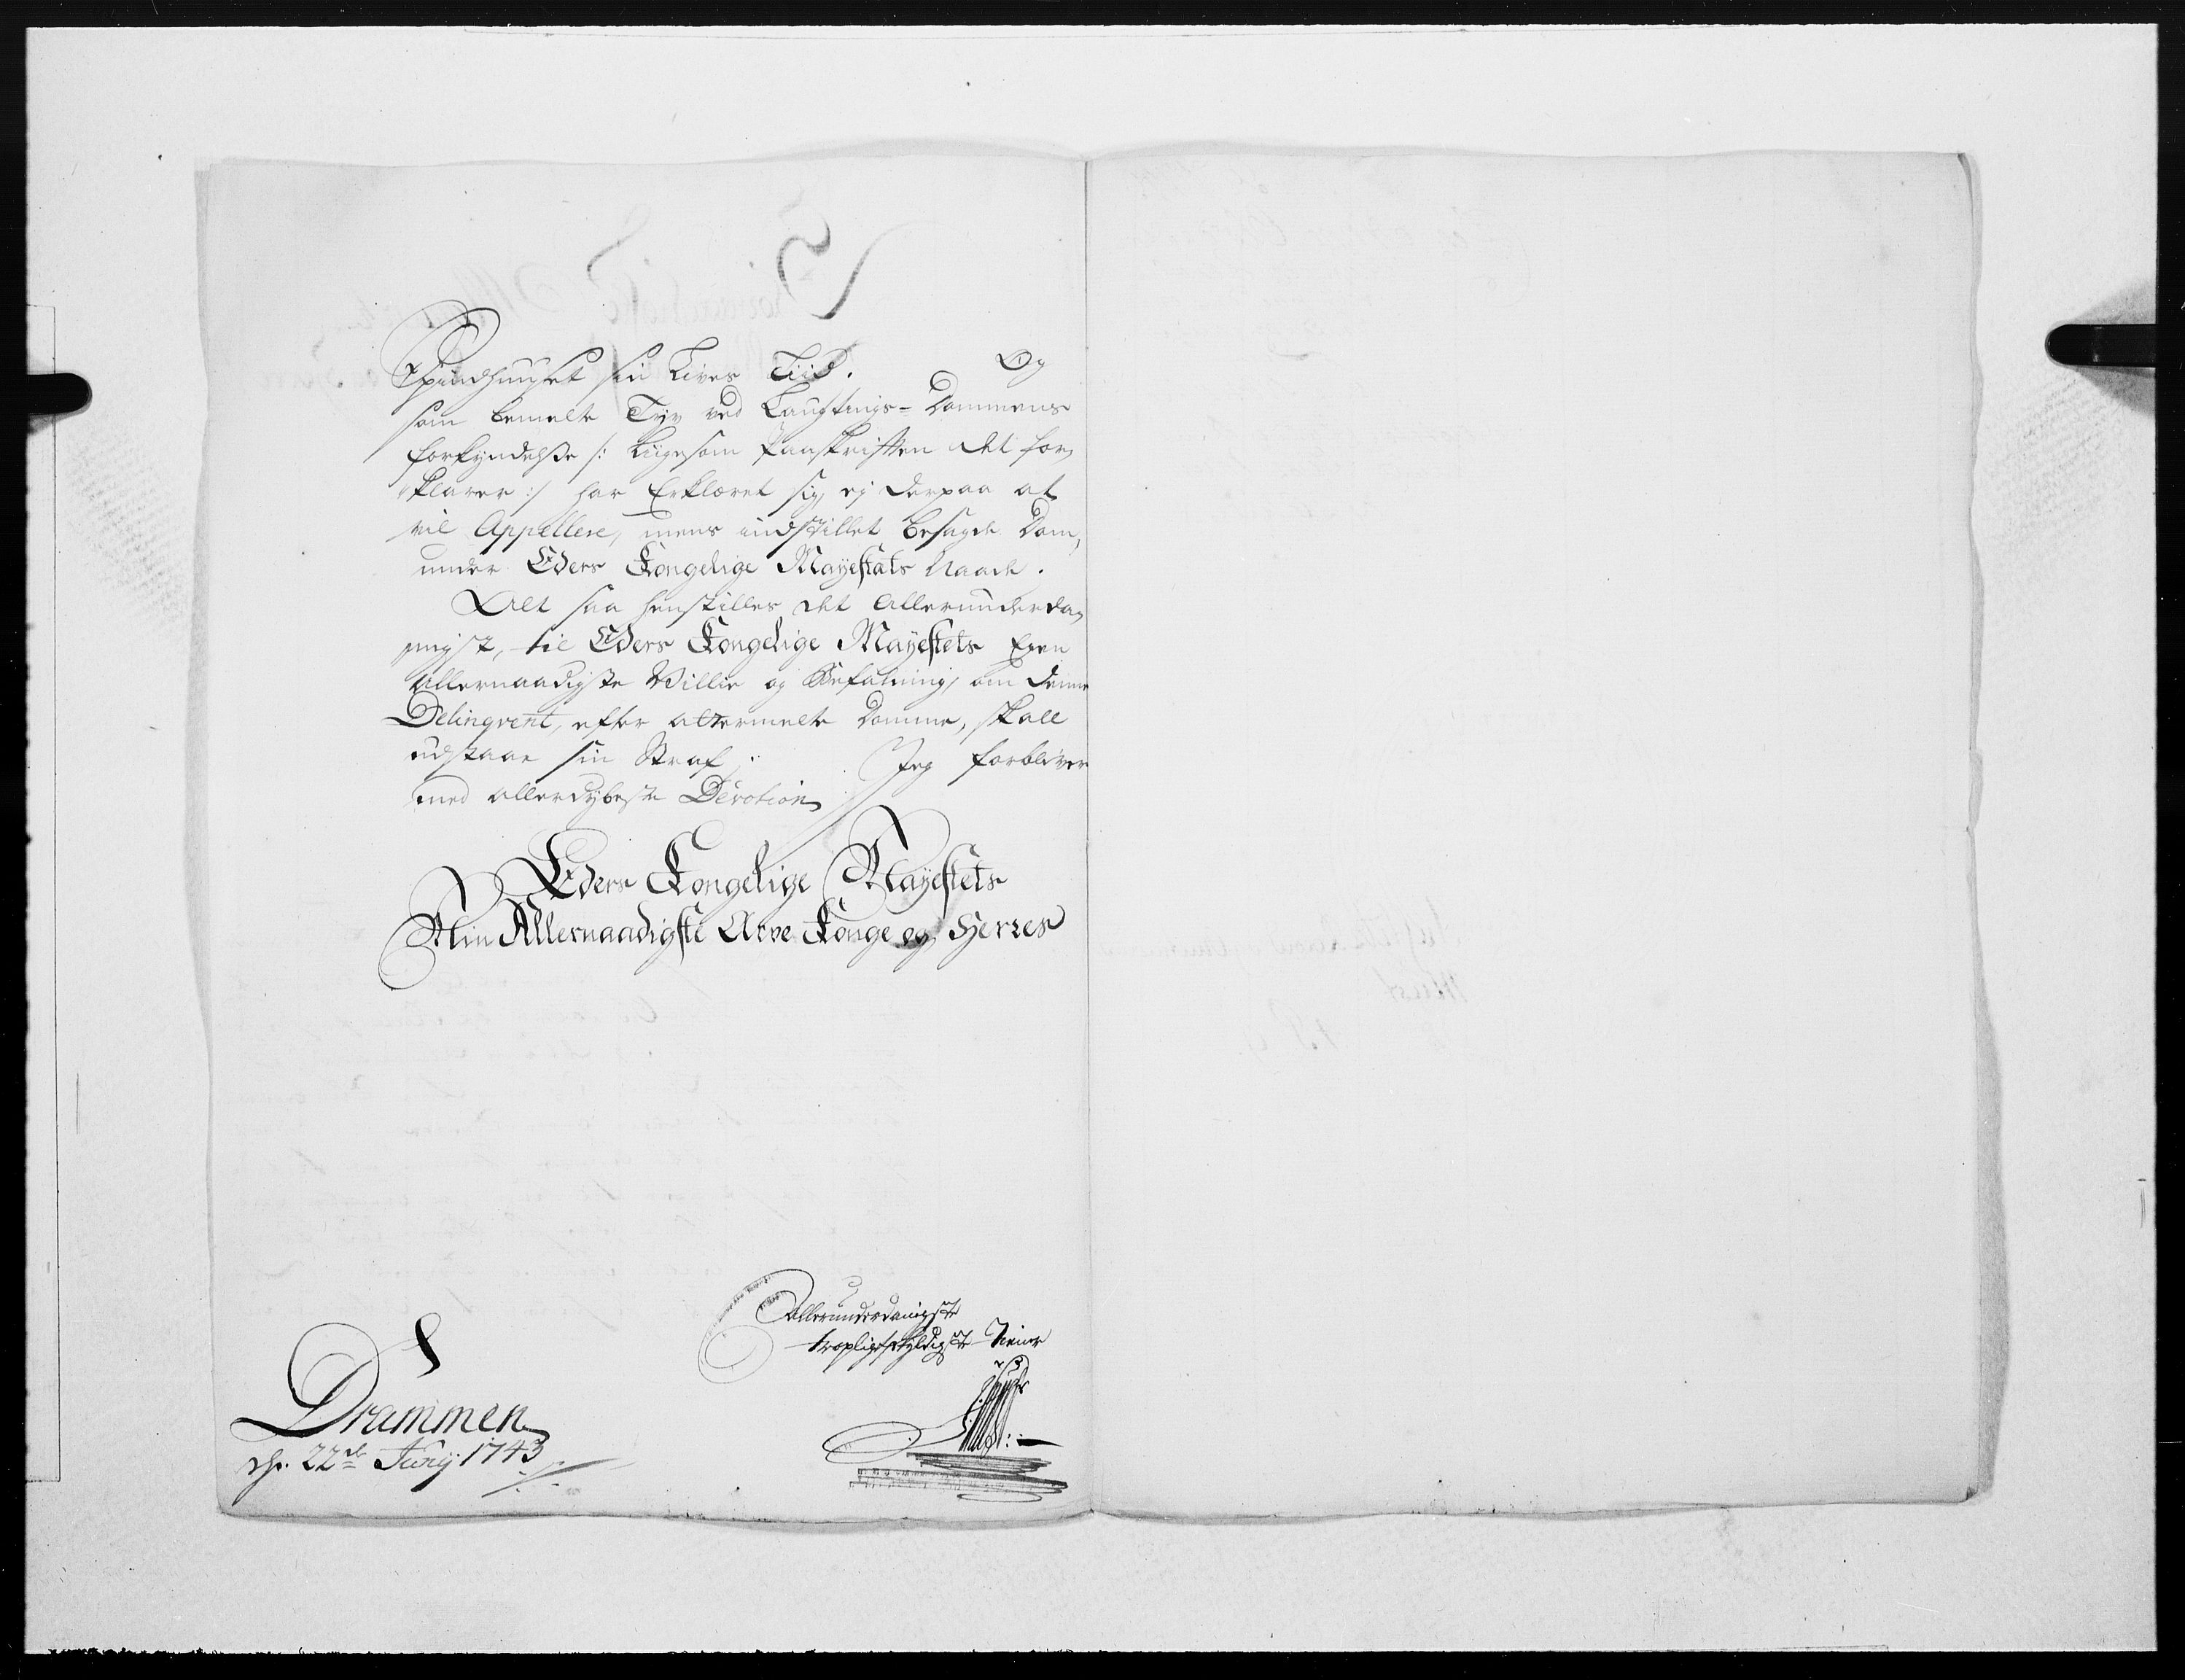 Spindhuuset sin Livs Tiid. Og
som bemelte Tyv ved Laugtings-Dommens
forkyndelsse /: liigesom Paaskriften det for,
klarer :/ har Erklæret sig ej derpaa at
vil Appellere, mens indstillet besagde Dom,
under Eders Kongelige Mayestäts Naade.
Alt saa henstilles det Allerunderda,
nigst, til Eders Kongelige Mayestets Egen
Allernaadigste Villie og Befaling, om denne
Delinqvent, efter attermelte Domme, skall
udstaae sin Straf; Jeg forbliver
med allerdybeste Devotion
Eders Kongelige Mayestets
Min Allernaadigste Arve Konge og Herres
Allerunderdanigste
troepligtskyldigste Tiener
Drammen
dh. 22de Junij 1743